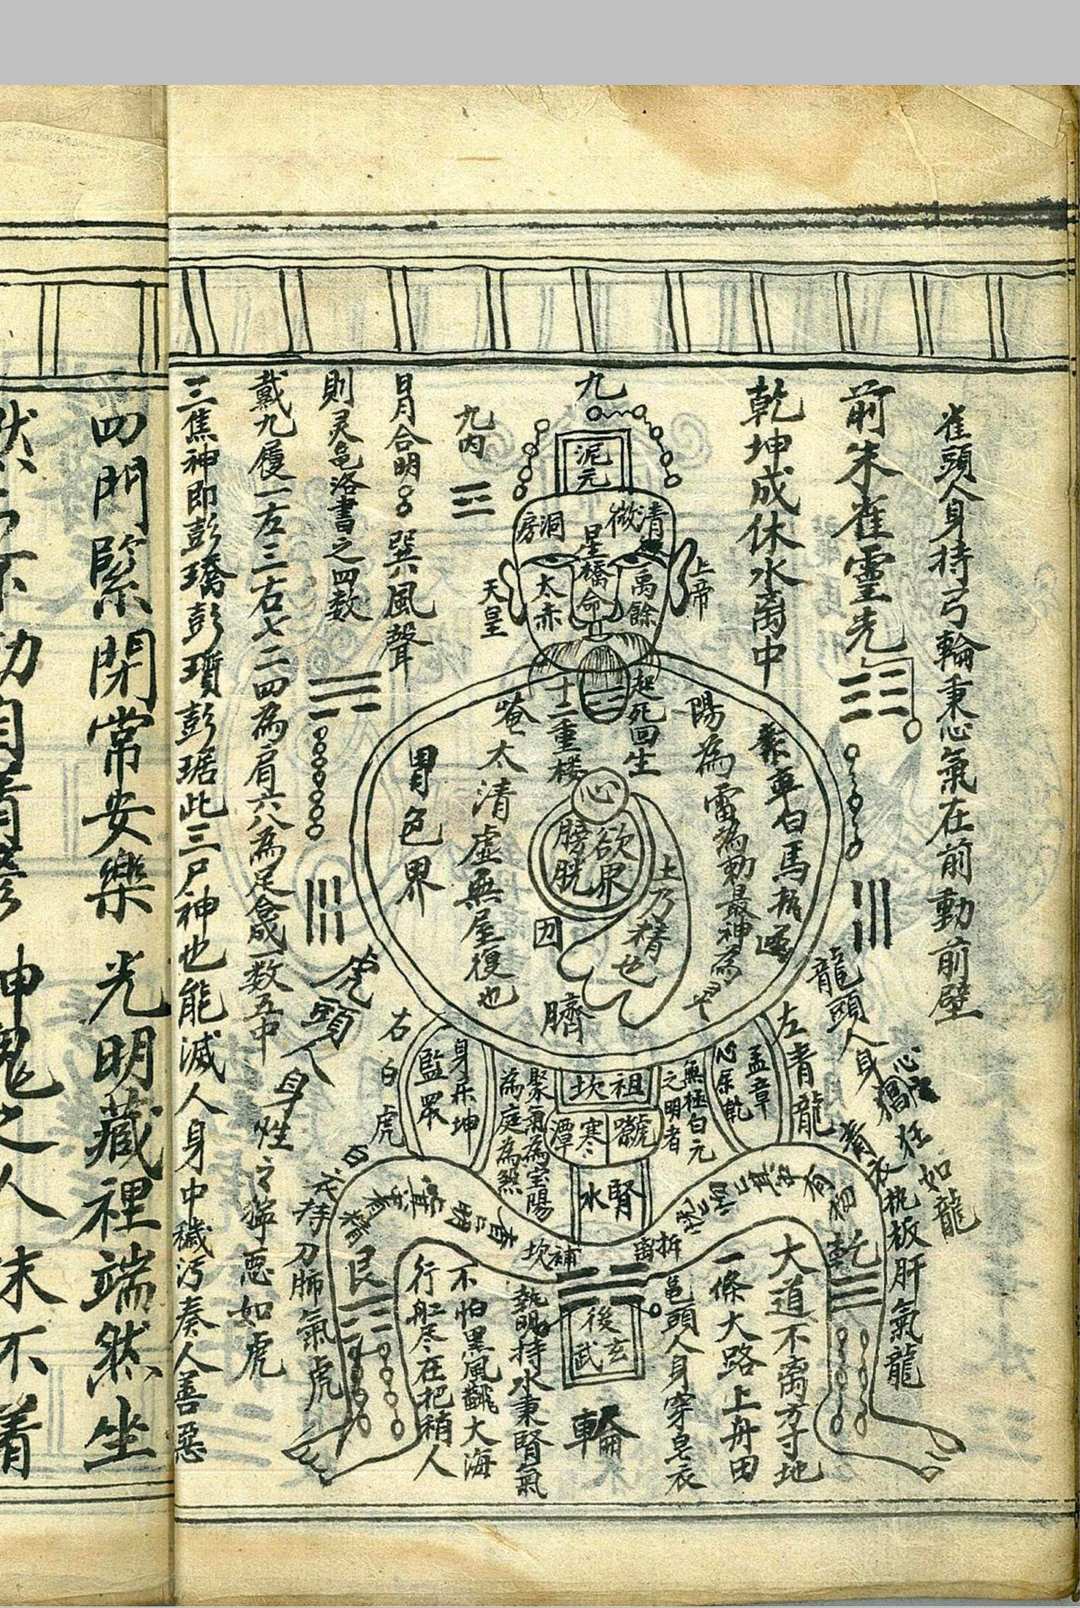 雀頭人身持弓輪秉心氣在前動前壁
前朱雀靈光
乾坤成休水离中
九
泥元
洞房
清微
星橋
命
太赤
禹餘
上帝
天皇
九内
日月合明
巽風聲
則灵龟洛書之四数
戴九履一左三右七二四為肩六八為足
数五中
三焦神即彭璚彭瓆彭琚此三尸神也能滅人身中穢污奏人善惡
起死回生
十二重楼
陽為雷為動最神為
車白馬
太清虛無屋復也
胃色界
心
欲界
膀胱
土乃精也
臍
龍頭人身
左青龍
虎頭人身性之狰惡如虎
右白虎
孟章
身乐坤
監眾
無極白元
之明者
聚氣為宝陽
為庭為煞
祖
坎
寒潭
腎水
如龍
桃板肝氣龍
持刀肺氣虎
艮
乾
坎補
离折
後玄武
大道不离方寸地
一條大路上舟田
龟頭人身穿皂衣
持水秉腎氣
輪
不怕黑風飜大海
行船尽在把稍人
四門緊閉常安樂光明藏裡端然坐
神鬼之人末不着